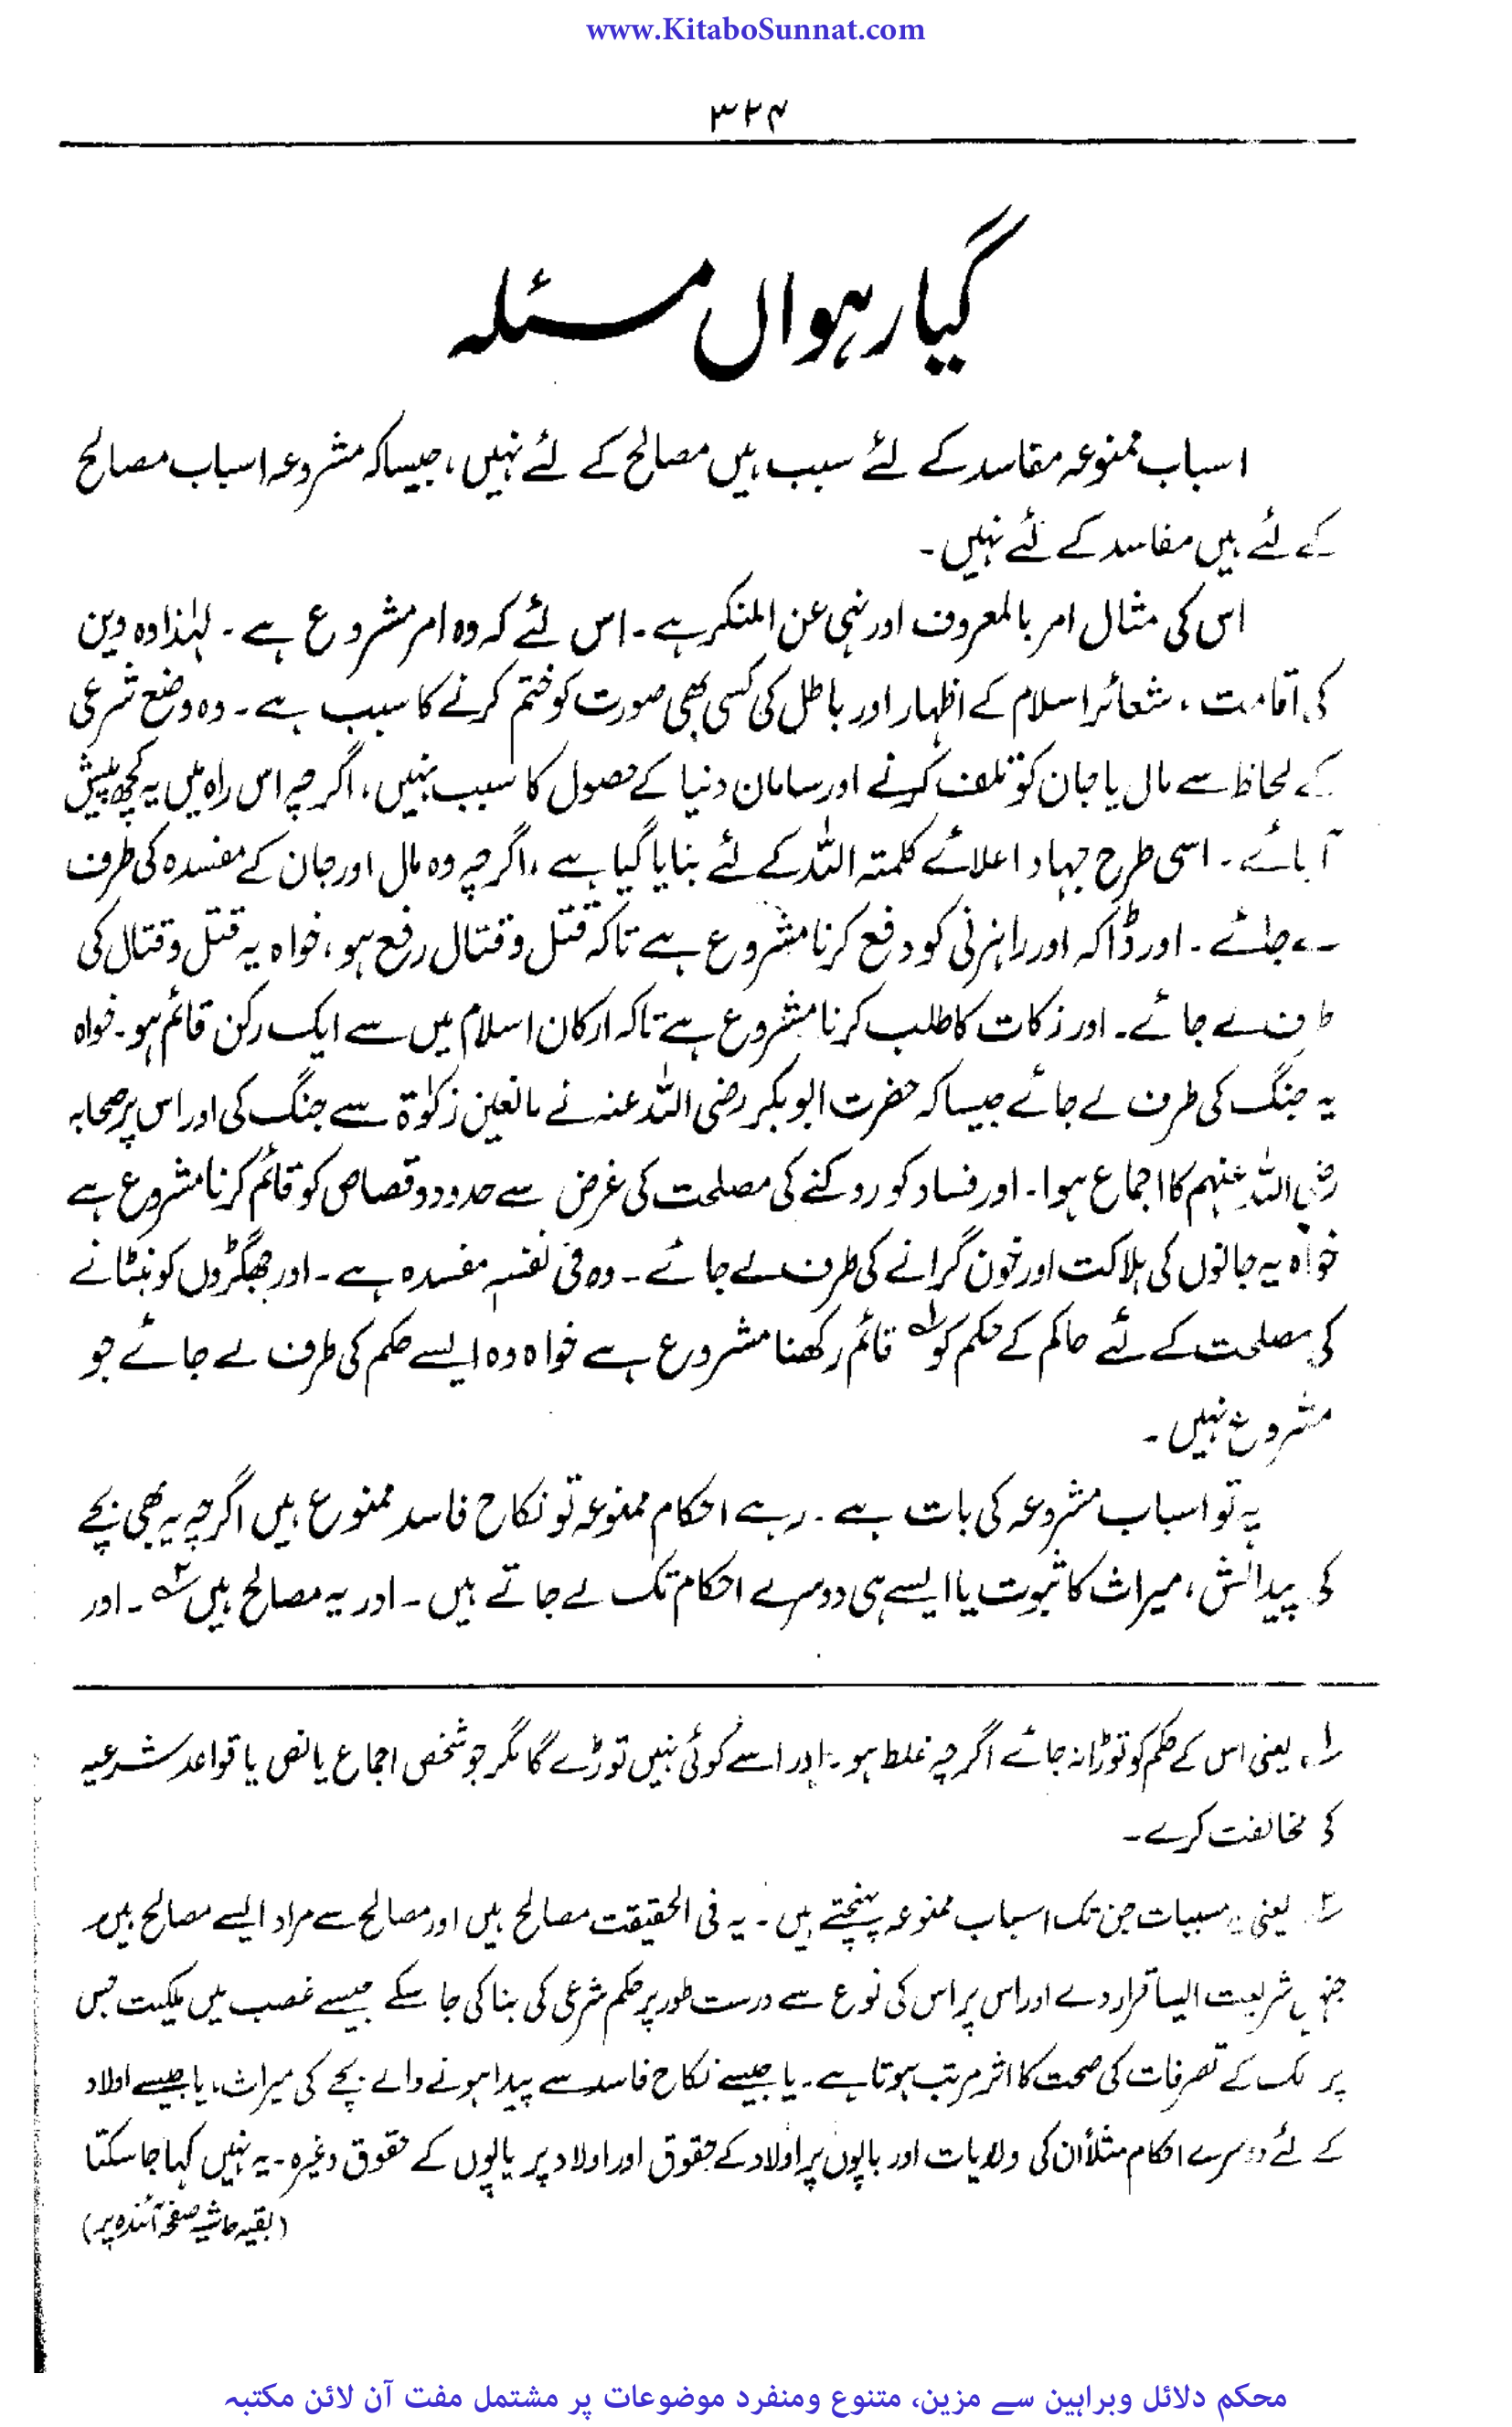 www.KitaboSunnat.com
۳۲۴
گیارہواں مسئلہ
اسباب ممنوعہ مقاسد کے لئے سبب ہیں مصالح کے لئے نہیں، جیسا کہ مشروعہ اسباب مصالح
کے لئے ہیں مفاسد کے لئے نہیں۔
اس کی مثال امر بالمعروف اور نہی عن المنکر ہے۔ اس لئے کہ وہ امر مشروع ہے۔ لہٰذا وہ دین
کی اقامت، شعائر اسلام کے اظہار اور باطل کی کسی بھی صورت کو ختم کرنے کا سبب ہے۔ وہ وضع شرعی
کے لحاظ سے مال یا جان کو تلف کرنے اور سامان دنیا کے حصول کا سبب نہیں، اگرچہ اس راہ میں یہ کچھ پیش
آ جائے۔ اسی طرح جہاد اعلائے کلمتہ اللہ کے لئے بنایا گیا ہے، اگرچہ وہ مال اور جان کے مفسدہ کی طرف
لے جائے۔ اور ڈاکہ اور راہزنی کو دفع کرنا مشروع ہے تاکہ قتل و قتال رفع ہو، خواہ یہ قتل و قتال کی
طرف لے جائے۔ اور زکات کا طلب کرنا مشروع ہے تاکہ ارکان اسلام میں سے ایک رکن قائم ہو۔ خواہ
یہ جنگ کی طرف لے جائے جیسا کہ حضرت ابوبکر رضی اللہ عنہ نے مانعین زکوٰۃ سے جنگ کی اور اس پر صحابہ
رضی اللہ عنہم کا اجماع ہوا۔ اور فساد کو روکنے کی مصلحت کی غرض سے حدود و قصاص کو قائم کرنا مشروع ہے
خواہ یہ جانوں کی ہلاکت اور خون گرانے کی طرف لے جائے۔ وہ فی نفسہٖ مفسدہ ہے۔ اور جھگڑوں کو نبٹانے
کی مصلحت کے لئے حاکم کے حکم کو ؎۱ قائم رکھنا مشروع ہے خواہ وہ ایسے حکم کی طرف لے جائے جو
مشروع نہیں۔
یہ تو اسباب مشروعہ کی بات ہے۔ رہے احکام ممنوعہ تو نکاح فاسد ممنوع ہیں اگرچہ یہ بھی بچے
کی پیدائش، میراث کا ثبوت یا ایسے ہی دوسرے احکام تک لے جاتے ہیں۔ اور یہ مصالح ہیں ؎۲۔ اور
؎۱، یعنی اس کے حکم کو توڑا نہ جائے اگرچہ غلط ہو۔ اور اسے کوئی نہیں توڑے گا مگر جو شخص اجماع یا نص یا قواعد شرعیہ
کی مخالفت کرے۔
؎۲ یعنی یہ مسببات جن تک اسباب ممنوعہ پہنچتے ہیں۔ یہ فی الحقیقت مصالح ہیں اور مصالح سے مراد ایسے مصالح ہیں
جنہیں شریعت ایسا قرار دے اور اس پر اس کی نوع سے درست طور پر حکم شرعی کی بنا کی جا سکے جیسے غصب میں ملکیت جس
پر ملک کے تصرفات کی صحت کا اثر مرتب ہوتا ہے۔ یا جیسے نکاح فاسد سے پیدا ہونے والے بچے کی میراث، یا جیسے اولاد
کے لئے دوسرے احکام مثلاً ان کی ولایات اور باپوں پر اولاد کے حقوق اور اولاد پر باپوں کے حقوق وغیرہ۔ یہ نہیں کہا جا سکتا
(بقیہ حاشیہ صفحہ آئندہ پر)
محکم دلائل وبراہین سے مزین، متنوع ومنفرد موضوعات پر مشتمل مفت آن لائن مکتبہ